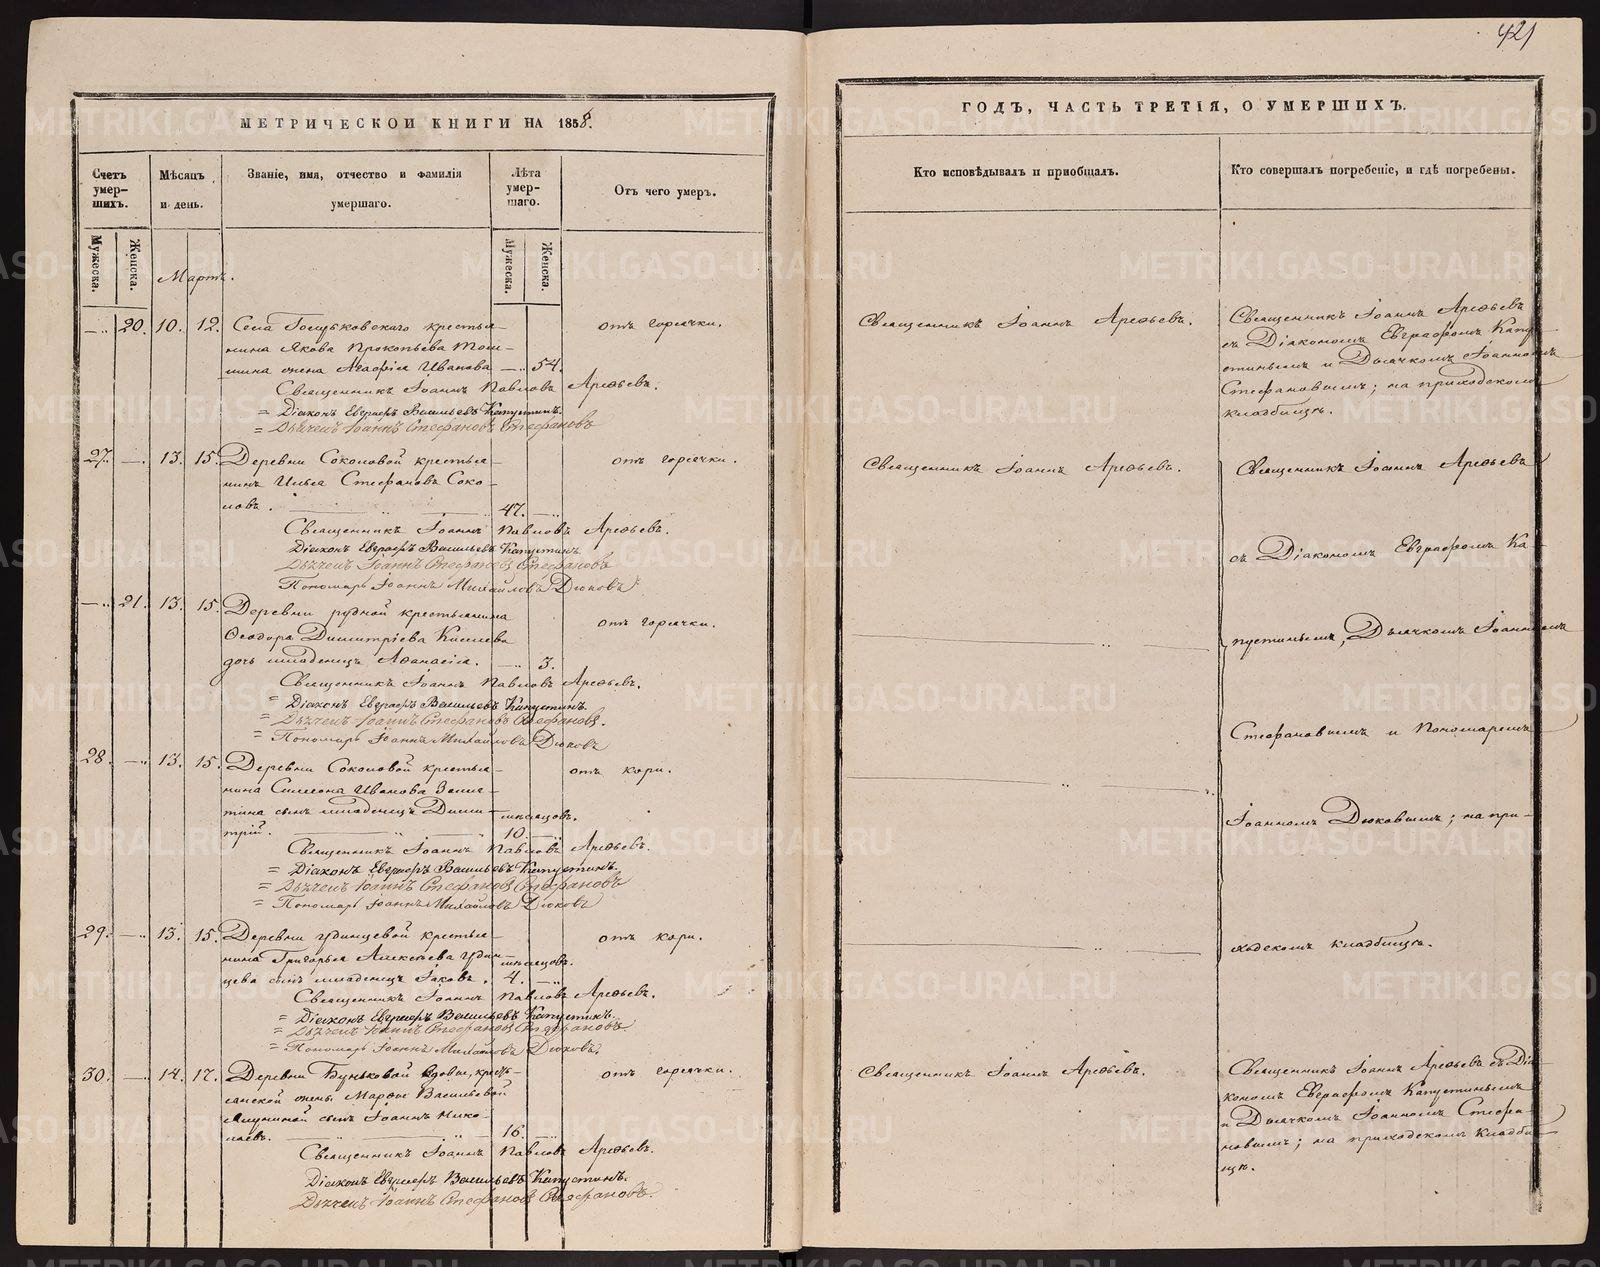 421
МЕТРИЧЕСКОЙ КНИГИ НА 1858.
ГОДЪ, ЧАСТЬ ТРЕТІЯ, О УМЕРШИХЪ.
Счетъ умер-шихъ.
Мужеска.
Женска.
Мѣсяцъ и день.
Званіе, имя, отчество и фамилія умершаго.
Лѣта умер-шаго.
Мужеска.
Женска.
Отъ чего умеръ.
Кто исповѣдывалъ и пріобщалъ.
Кто совершалъ погребеніе, и гдѣ погребены.
Мартъ.
20. 10. 12. Села крестья-
нина Якова Прокопьева
жена Агафія Иванова 54.
отъ горячки.
Священникъ Іоаннъ Павловъ Арефьевъ.
= Діаконъ Евграфъ Васильевъ Капустинъ.
= Дьячекъ Іоаннъ Стефановъ Стефановъ
Священникъ Іоаннъ Арефьевъ.
Священникъ Іоаннъ Арефьевъ
съ Діакономъ Евграфомъ Капу-
стинымъ и Дьячкомъ Іоанномъ
Стефановымъ; на приходскомъ
кладбищѣ.
27. 13. 15. Деревни Соколовой крестья-
нинъ Илья Стефановъ Соко-
ловъ. 47.
отъ горячки.
Священникъ Іоаннъ Павловъ Арефьевъ.
Діаконъ Евграфъ Васильевъ Капустинъ.
Дьячекъ Іоаннъ Стефановъ Стефановъ
Пономарь Іоаннъ Михайловъ Дюковъ
Священникъ Іоаннъ Арефьевъ.
Священникъ Іоаннъ Арефьевъ
съ Діакономъ Евграфомъ Ка-
21. 13. 15. Деревни рудной крестьянина
Ѳеодора Димитріева Киселева
дочь младенецъ Аѳанасія. 3.
отъ горячки.
Священникъ Іоаннъ Павловъ Арефьевъ.
= Діаконъ Евграфъ Васильевъ Капустинъ.
= Дьячекъ Іоаннъ Стефановъ Стефановъ.
= Пономарь Іоаннъ Михайловъ Дюковъ
пустинымъ, Дьячкомъ Іоанномъ
Стефановымъ и Пономаремъ
28. 13. 15. Деревни Соколовой крестья-
нина Симеона Иванова
сынъ младенецъ Дими-
трій. мѣсяцовъ. 10.
отъ кори.
Священникъ Іоаннъ Павловъ Арефьевъ.
= Діаконъ Евграфъ Васильевъ Капустинъ.
= Дьячекъ Іоаннъ Стефановъ Стефановъ
= Пономарь Іоаннъ Михайловъ Дюковъ
Іоанномъ Дюковымъ; на при-
29. 13. 15. Деревни гудинцевой крестья-
нина Григорья Алексѣева гудин-
цева сынъ младенецъ Іаковъ. мѣсяцовъ. 4.
отъ кори.
Священникъ Іоаннъ Павловъ Арефьевъ.
= Діаконъ Евграфъ Васильевъ Капустинъ.
= Дьячекъ Іоаннъ Стефановъ Стефановъ.
= Пономарь Іоаннъ Михайловъ Дюковъ.
ходскомъ кладбищѣ.
30. 14. 17. Деревни Буньковой вдовы, кресть-
янской жены Марфы Васильевой
сынъ Іоаннъ Нико-
лаевъ. 16.
отъ горячки.
Священникъ Іоаннъ Павловъ Арефьевъ.
Діаконъ Евграфъ Васильевъ Капустинъ.
Дьячекъ Іоаннъ Стефановъ Стефановъ.
Священникъ Іоаннъ Арефьевъ.
Священникъ Іоаннъ Арефьевъ съ Діа-
кономъ Евграфомъ Капустинымъ
и Дьячкомъ Іоанномъ Стефа-
новымъ; на приходскомъ кладби-
щѣ.
METRIKI.GASO-URAL.RU